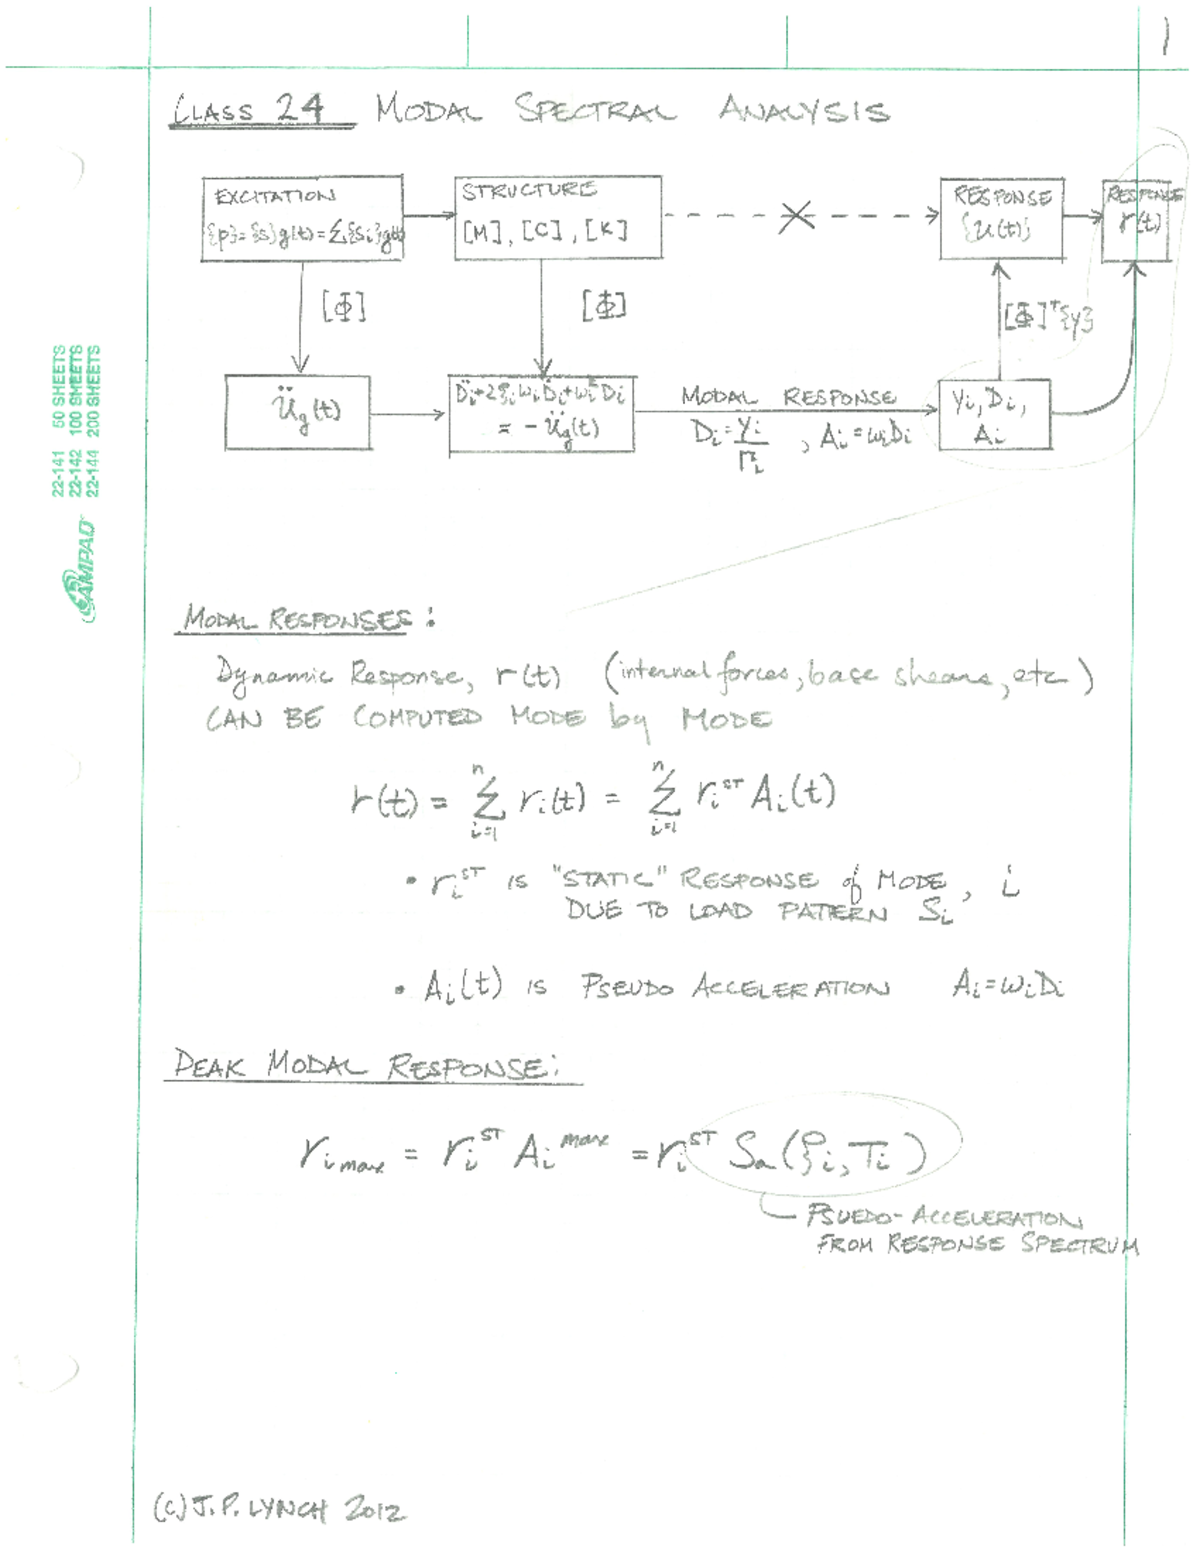 1
CLASS 24 MODAL SPECTRAL ANALYSIS
EXCITATION
{p}={s}g(t)=Σ{si}g(t)
STRUCTURE
[M], [C], [K]
RESPONSE
{u(t)}
RESPONSE
r(t)
[Φ]
[Φ]
[Φ]ᵀ{y}
üg(t)
D̈i+2ξiωiḊi+ωi²Di
= -üg(t)
MODAL RESPONSE
Di=yi/Γi , Ai=ωiDi
yi, Di,
Ai
22-141 50 SHEETS
22-142 100 SHEETS
22-144 200 SHEETS
AMPAD
MODAL RESPONSES:
Dynamic Response, r(t) (internal forces, base shears, etc)
CAN BE COMPUTED MODE by MODE
r(t) = Σ(i=1 to n) ri(t) = Σ(i=1 to n) riˢᵀ Ai(t)
• riˢᵀ IS "STATIC" RESPONSE of MODE, i
DUE TO LOAD PATTERN Si
• Ai(t) IS PSEUDO ACCELERATION Ai=ωiDi
PEAK MODAL RESPONSE:
ri max = riˢᵀ Ai max = riˢᵀ Sa(ξi, Ti)
PSUEDO-ACCELERATION
FROM RESPONSE SPECTRUM
(c) J.P. LYNCH 2012